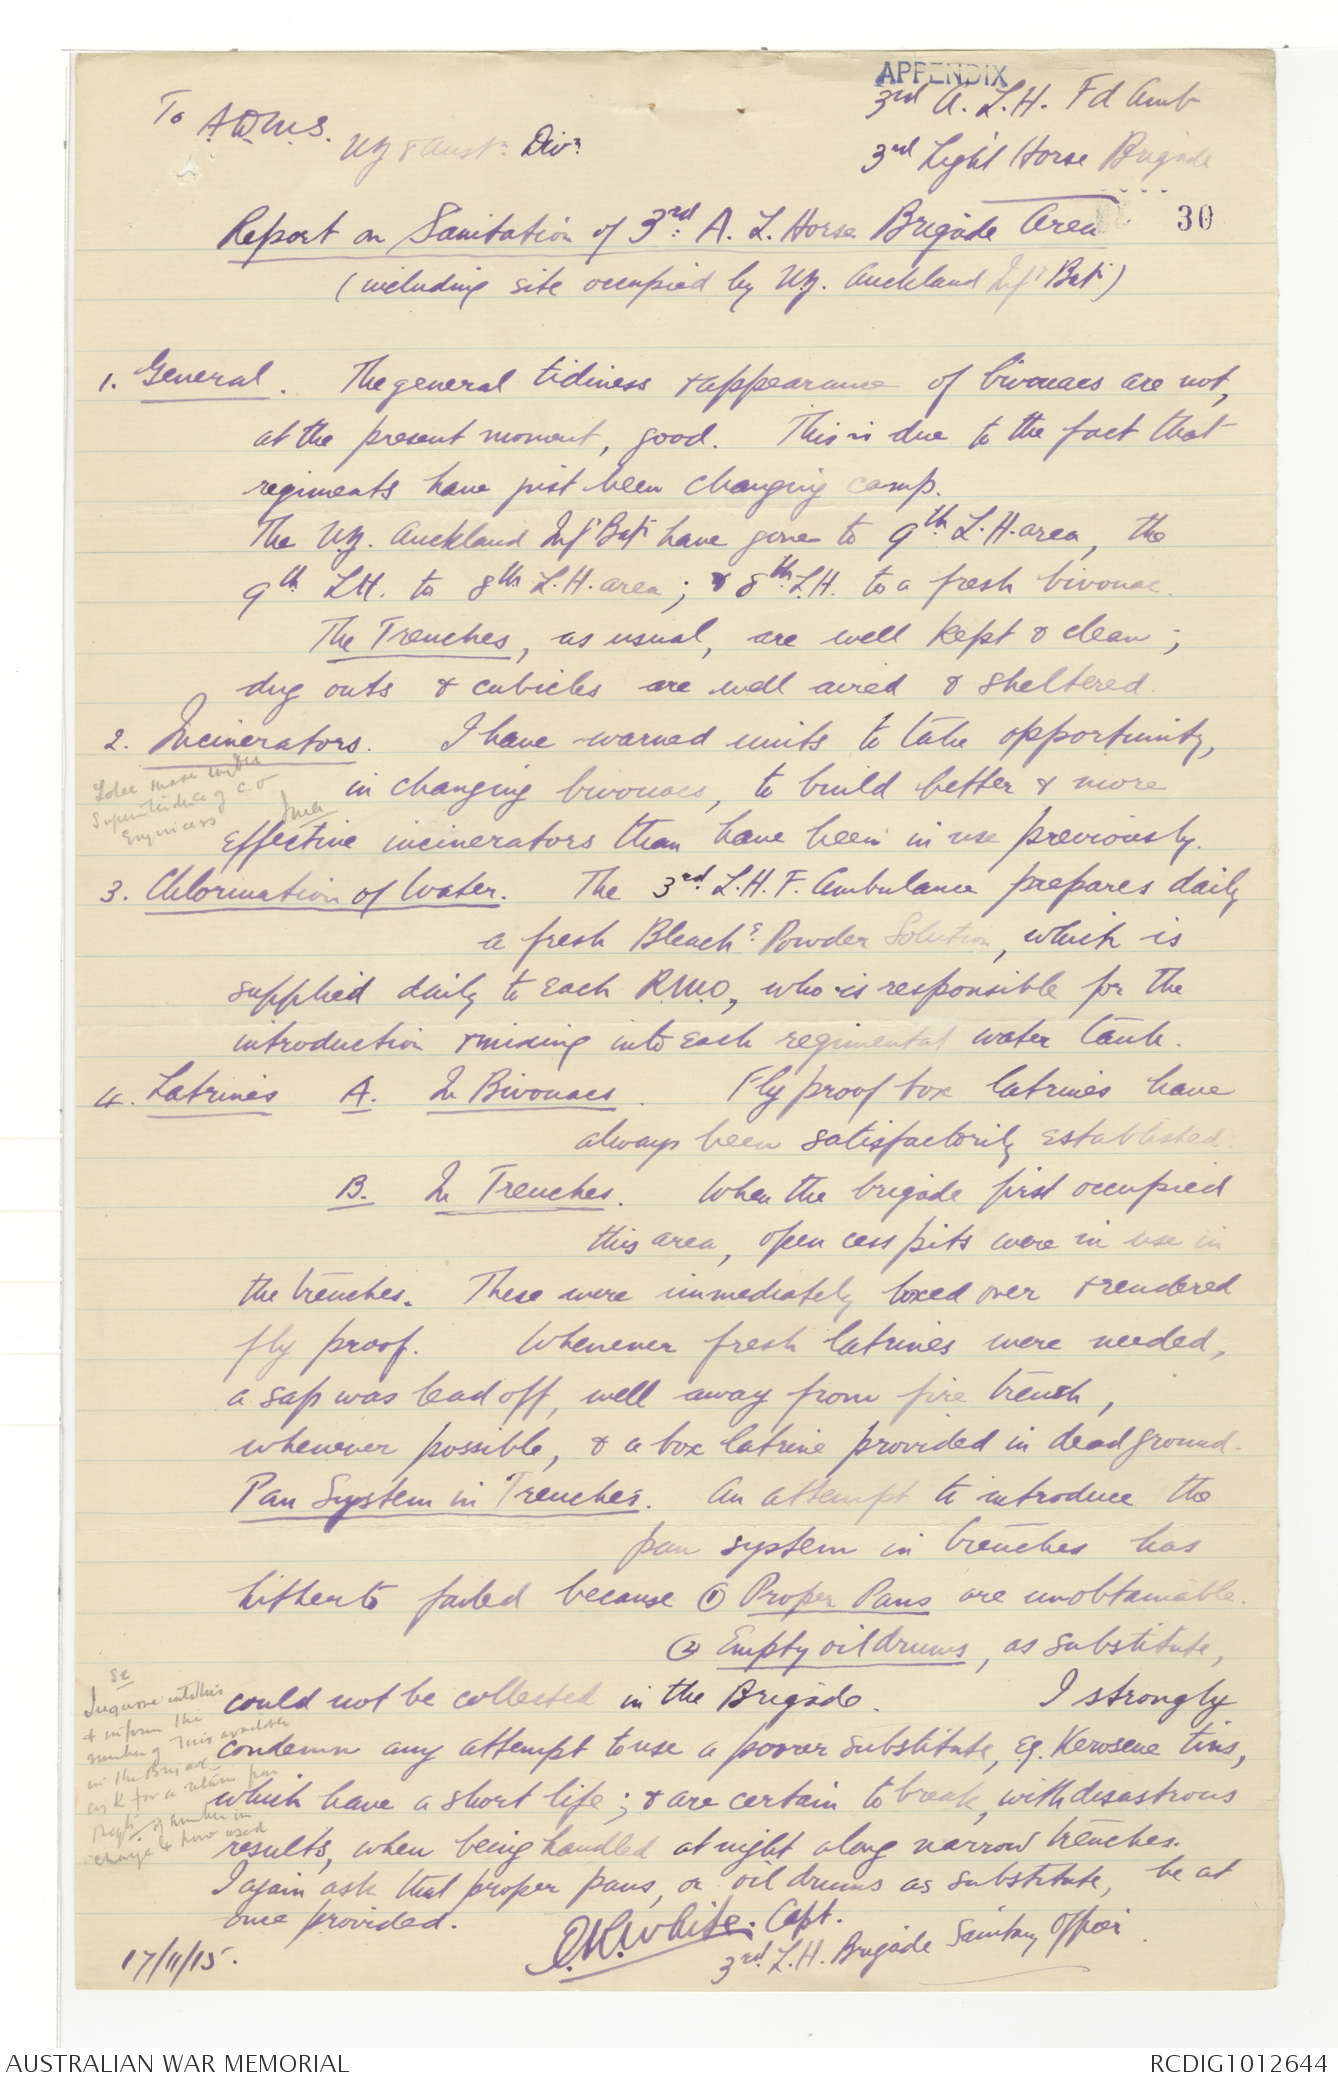 APPENDIX
To A.D.M.S.
NZ & Austn Divn.
3rd A. L. H. Fd Amb
3rd Light Horse Brigade
30
Report on Sanitation of 3rd. A. L. Horse Brigade Area
(including site occupied by NZ. Auckland Infy Batn)
1. General. The general tidiness & appearance of bivouacs are not,
at the present moment, good. This is due to the fact that
regiments have just been changing camp.
The NZ. Auckland Infy Batn have gone to 9th. L.H. area, the
9th LH. to 8th L.H. area; & 8th. L.H. to a fresh bivouac.
The Trenches, as usual, are well kept & clean;
dug outs & cubicles are well aired & sheltered.
2. Incinerators. I have warned units to take opportunity,
in changing bivouacs, to build better & more
effective incinerators than have been in use previously.
To be made under
Superintendence of C.O
Engineers
3. Chlorination of Water. The 3rd. L.H.F. Ambulance prepares daily
a fresh Bleachg Powder Solution, which is
supplied daily to each R.M.O, who is responsible for the
introduction & mixing into each regimental water tank.
4. Latrines A. In Bivouacs. Fly proof box latrines have
always been satisfactorily established.
B. In Trenches. When the brigade first occupied
this area, open cess pits were in use in
the trenches. These were immediately boxed over & rendered
fly proof. Whenever fresh latrines were needed,
a sap was lead off, well away from fire trench,
whenever possible, & a box latrine provided in dead ground.
Pan System in Trenches. An attempt to introduce the
pan system in trenches has
hitherto failed because (1) Proper Pans are unobtainable.
(2) Empty oil drums, as substitute,
could not be collected in the Brigade. I strongly
condemn any attempt to use a poorer substitute, eg. Kerosene tins,
which have a short life; & are certain to break, with disastrous
results, when being handled at night along narrow trenches.
I again ask that proper pans, or oil drums as substitute, be at
once provided.
Inquire into this
& inform the
number of Tins available
in the Brigade
ask for a return from
Regts of number in
charge & how used
O.K. White. Capt.
3rd. L.H. Brigade Sanitary Officer
17/11/15.
AUSTRALIAN WAR MEMORIAL
RCDIG1012644